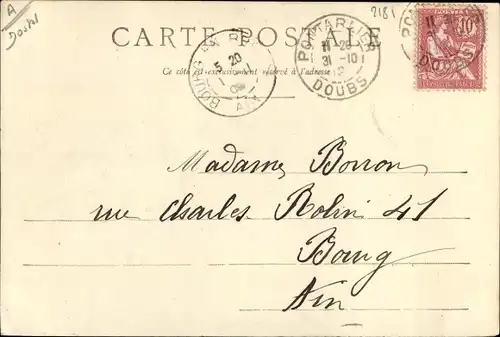 A
Doshl
2181
CARTE POSTALE
Ce côté est exclusivement réservé à l'adresse
BOURG
5 20
1
AIN
PONTARLIER
11 20
31 -10
DOUBS
POSTES
10
DOUBS
Madame Borron
rue Charles Rolin 41
Bourg
Ain